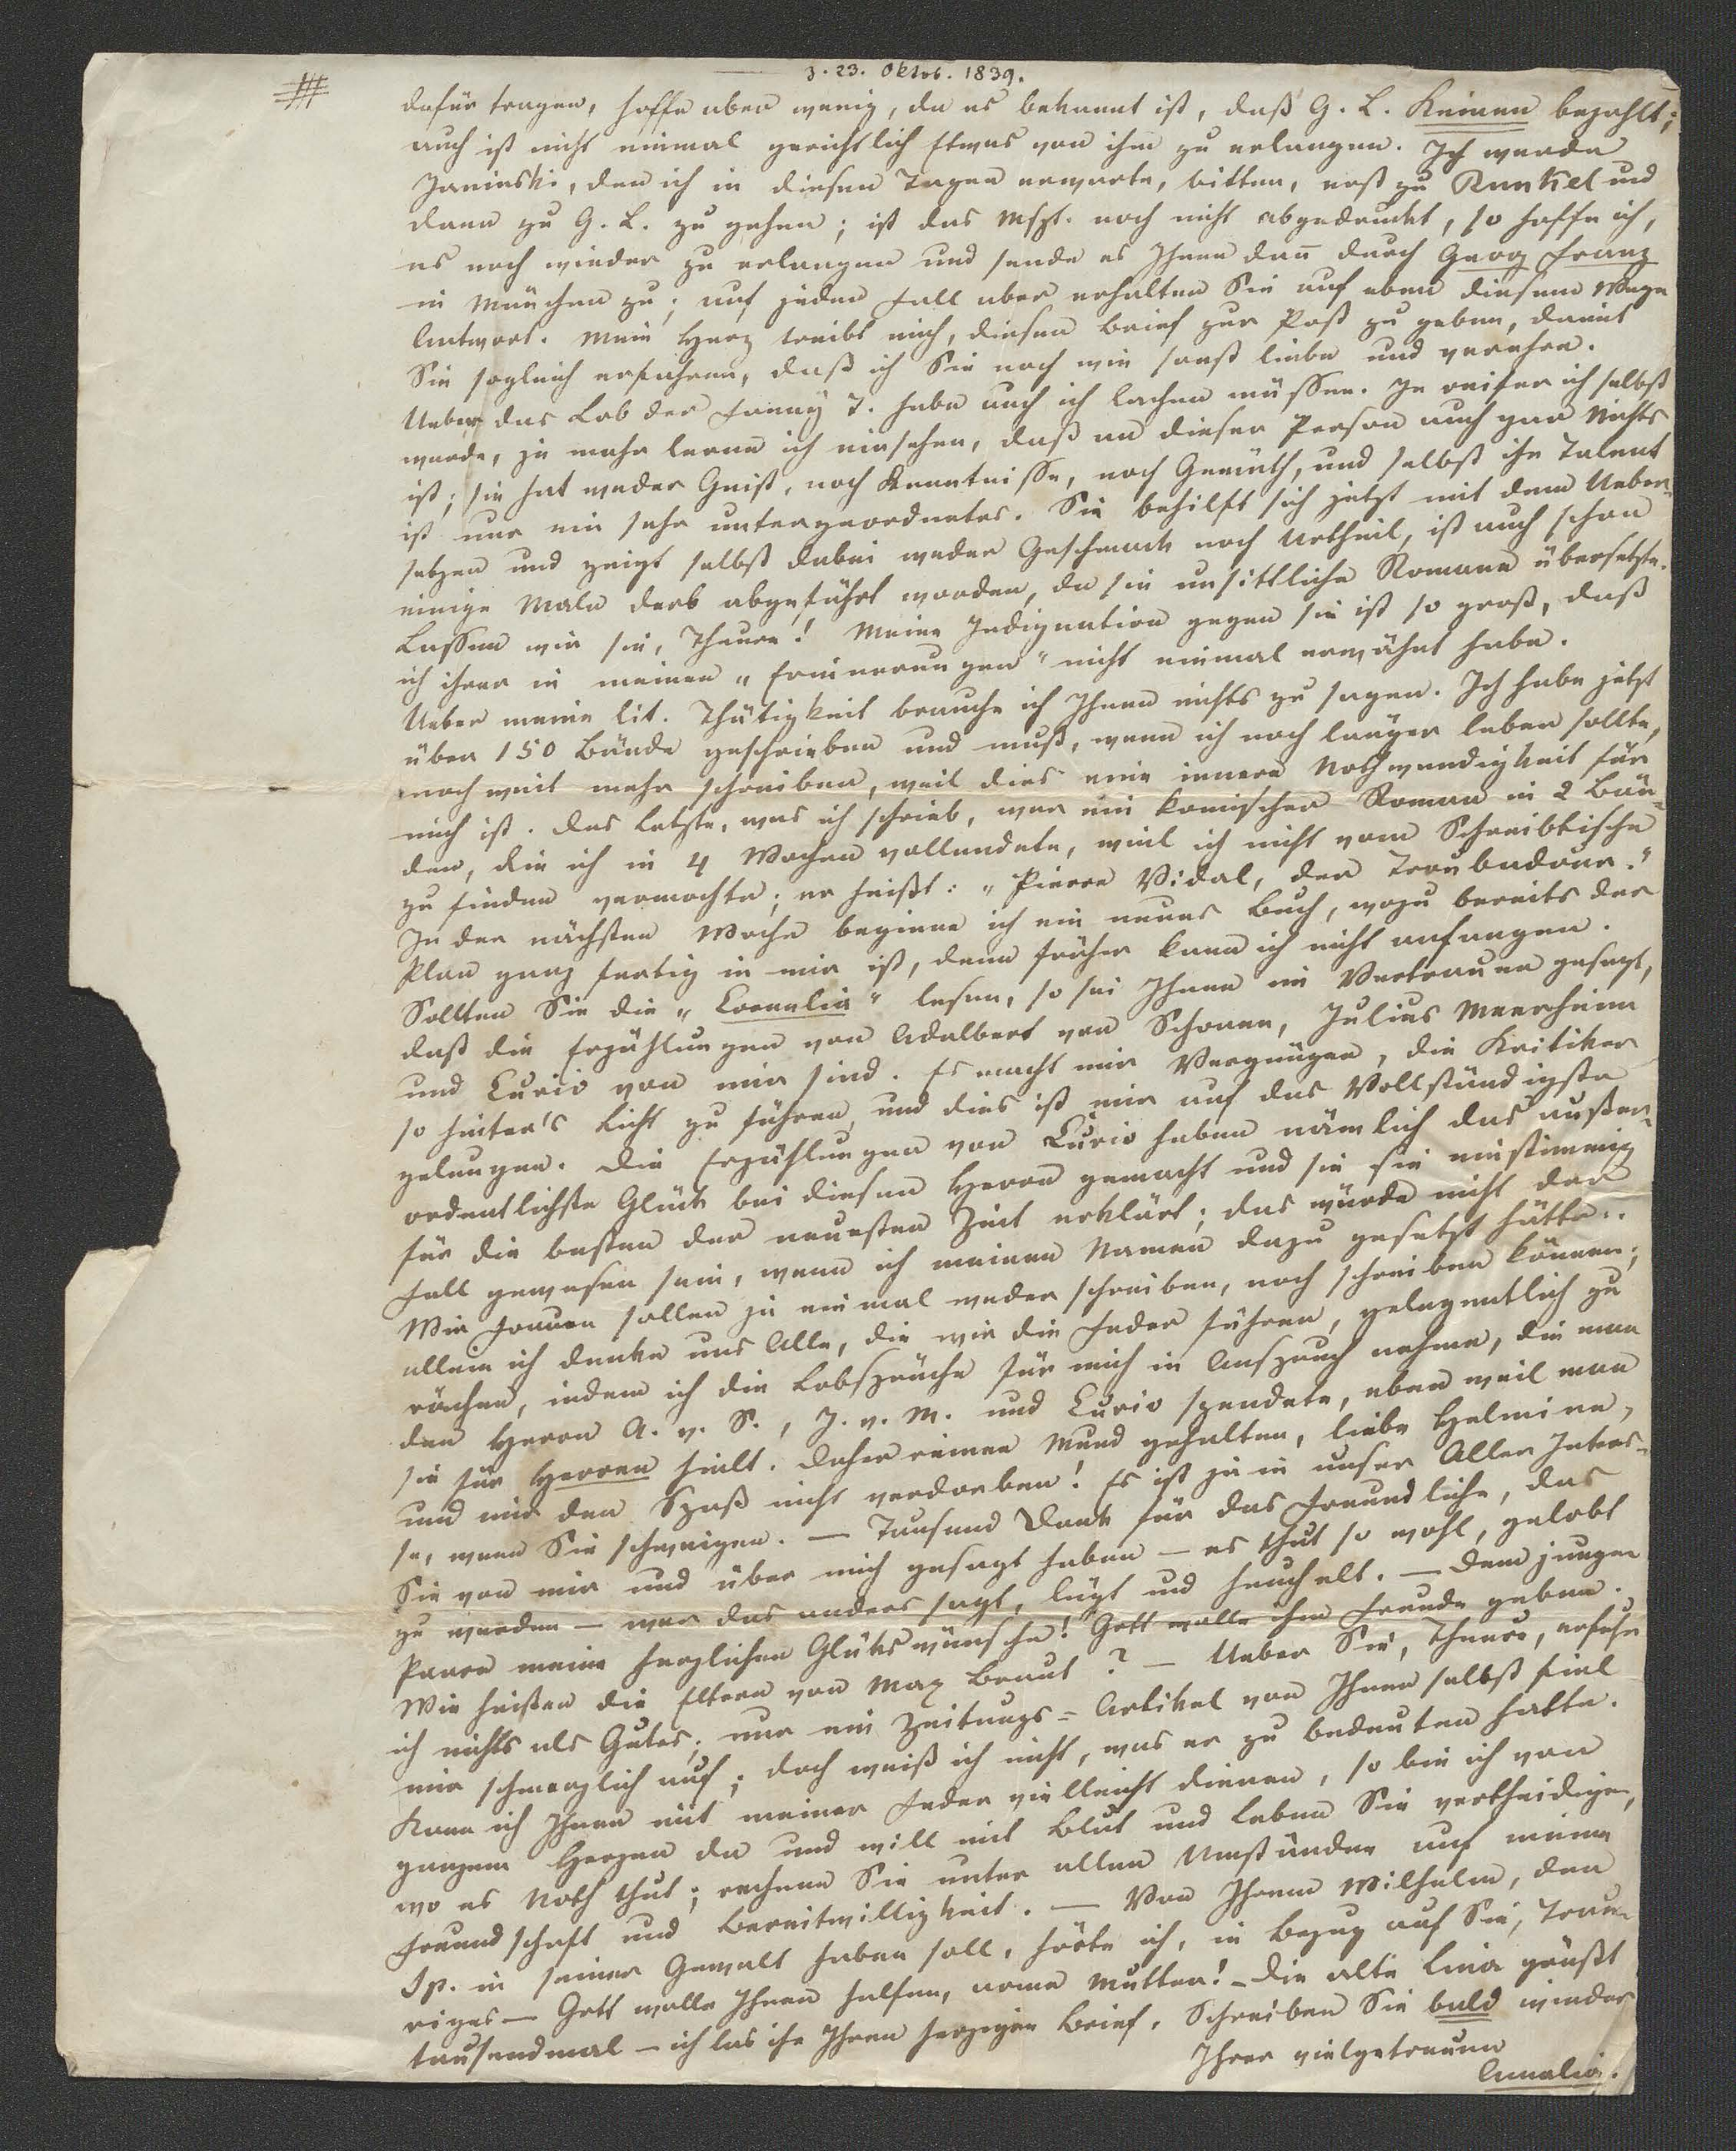 z. 23. Oktob. 1839.
dafür tragen, hoffe aber wenig, da es bekannt ist, daß G. L. Keinen bezahlt;
auch ist nicht einmal gerichtlich Etwas von ihm zu erlangen. Ich werde
Janinski, den ich in diesen Tagen erwarte, bitten, erst zu Runkel und
dann zu G. L. zu gehen; ist das Mspt. noch nicht abgedruckt, so hoffe ich,
es noch wieder zu erlangen und sende es Ihnen dann durch Georg Franz
in München zu; auf jeden Fall aber erhalten Sie auf eben diesem Wege
Antwort. Mein Herz treibt mich, diesen Brief zur Post zu geben, damit
Sie sogleich erfahren, daß ich Sie noch wie sonst liebe und verehre.
Ueber das Lob der Fanny T. habe auch ich lachen müssen. Je reifer ich selbst
werde, je mehr lerne ich einsehen, daß an dieser Person auch gar Nichts
ist; sie hat weder Geist, noch Kenntnisse, noch Gemüth, und selbst ihr Talent
ist nur ein sehr untergeordnetes. Sie behilft sich jetzt mit dem Ueber-
setzen und zeigt selbst dabei weder Geschmack noch Urtheil, ist auch schon
einige Male derb abgeführt worden, da sie unsittliche Romane übersetzte.
Lassen wir sie, Theure! Meine Indignation gegen sie ist so groß, daß
ich ihrer in meinen „Erinnerungen“ nicht einmal erwähnt habe.
Ueber meine lit. Thätigkeit brauche ich Ihnen nichts zu sagen. Ich habe jetzt
über 150 Bände geschrieben und muß, wenn ich noch länger leben sollte,
noch weit mehr schreiben, weil dies eine innere Nothwendigkeit für
mich ist. Das Letzte, was ich schrieb, war ein komischer Roman in 2 Bän-
den, die ich in 4 Wochen vollendete, weil ich nicht vom Schreibtische
zu finden vermochte; er heißt: „Pierre Vidal, der Troubadour.“
In der nächsten Woche beginne ich ein neues Buch, wozu bereits der
Plan ganz fertig in mir ist, denn früher kann ich nicht anfangen.
Sollten Sie die „Cornelia“ lesen, so sei Ihnen im Vertrauen gesagt,
daß die Erzählungen von Adalbert von Schonen, Julius Meerheim
und Curio von mir sind. Es macht mir Vergnügen, die Kritiker
so hinter's Licht zu führen, und dies ist mir auf das Vollständigste
gelungen. Die Erzählungen von Curio haben nämlich das außer-
ordentlichste Glück bei diesen Herren gemacht und sie sie einstimmig
für die besten der neuesten Zeit erklärt; das würde nicht der
Fall gewesen sein, wenn ich meinen Namen dazu gesetzt hätte.
Wir Frauen sollen ja einmal weder schreiben, noch schreiben können;
allein ich denke uns Alle, die wir die Feder führen, gelegentlich zu
rächen, indem ich die Lobsprüche für mich in Anspruch nehme, die man
den Herren A. v. S., J. v. M. und Curio spendete, eben weil man
sie für Herren hielt. Daher reinen Mund gehalten, liebe Helmina,
und mir den Spaß nicht verdorben! Es ist ja in unser Aller Interes-
se, wenn Sie schweigen. — Tausend Dank für das Freundliche, das
Sie von mir und über mich gesagt haben — es thut so wohl, gelobt
zu werden — wer das anders sagt, lügt und heuchelt. — Dem jungen
Paare meine herzlichen Glückwünsche! Gott wolle ihm Freude geben.
Wie heißen die Eltern von Max Braut? — Ueber Sie, Theure, erfuhr
ich nichts als Gutes; nur ein Zeitungs-Artikel von Ihnen selbst fiel
mir schmerzlich auf; doch weiß ich nicht, was er zu bedeuten hatte.
Kann ich Ihnen mit meiner Feder vielleicht dienen, so bin ich von
ganzem Herzen da und will mit Blut und Leben Sie vertheidigen,
wo es Noth thut; rechnen Sie unter allen Umständen auf meine
Freundschaft und Bereitwilligkeit. — Von Ihrem Wilhelm, den
Sp. in seiner Gewalt haben soll, hörte ich, in Bezug auf Sie, Trau-
riges — Gott wolle Ihnen helfen, arme Mutter! — Die alte Lina grüßt
tausendmal — ich las ihr Ihren herzigen Brief. Schreiben Sie bald wieder
Ihrer vielgetreuen
Amalia.